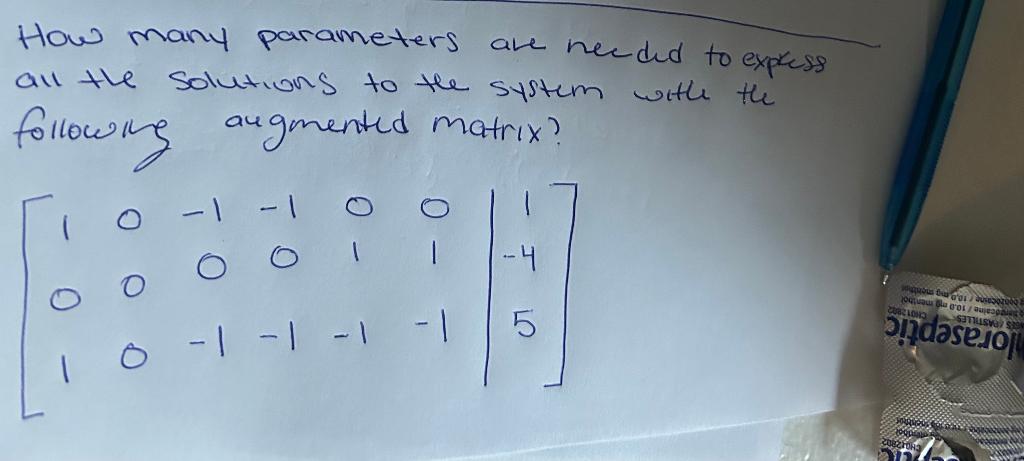 How many parameters are needed to express
all the solutions to the system with the
following augmented matrix?
1 0 -1 -1 0 0 | 1
0 0 0 0 1 1 | -4
1 0 -1 -1 -1 -1 | 5
loraseptic
CH012802